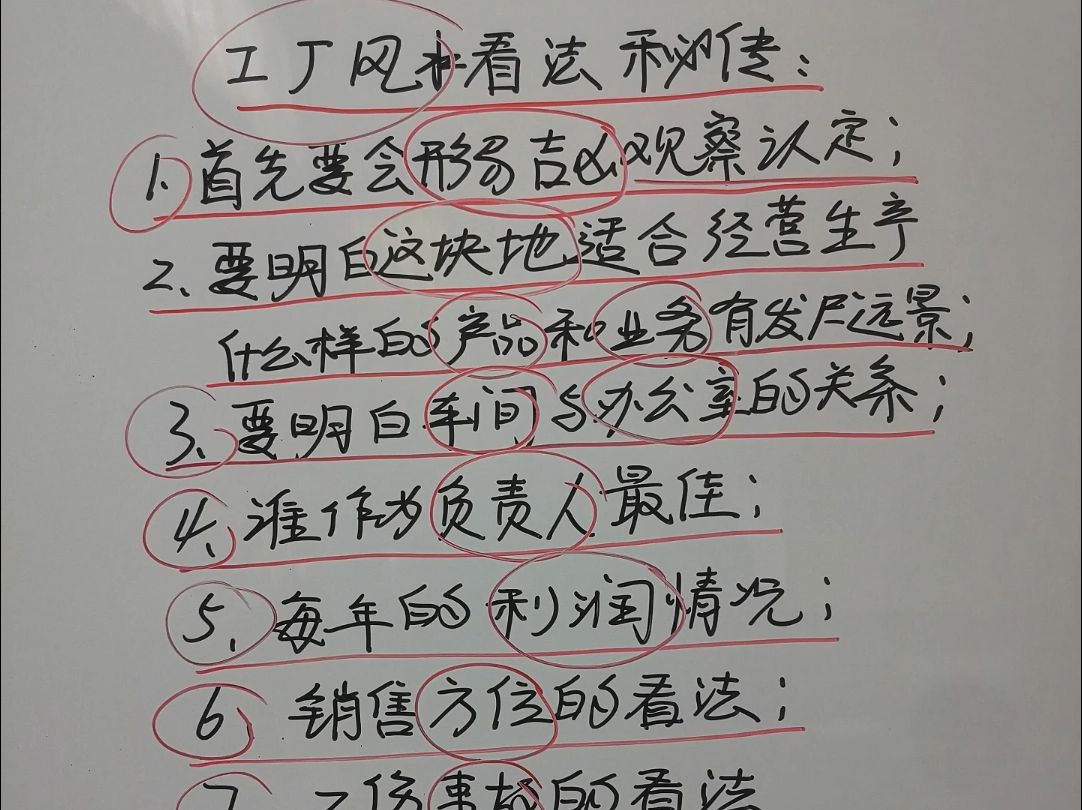 工厂风水看法秘传:
1.首先要会形易吉凶观察认定;
2、要明白这块地适合经营生产
什么样的产品和业务有发展远景;
3、要明白车间与办公室的关系;
4、谁作为负责人最佳;
5、每年的利润情况;
6、销售方位的看法;
7 工伤事故的看法